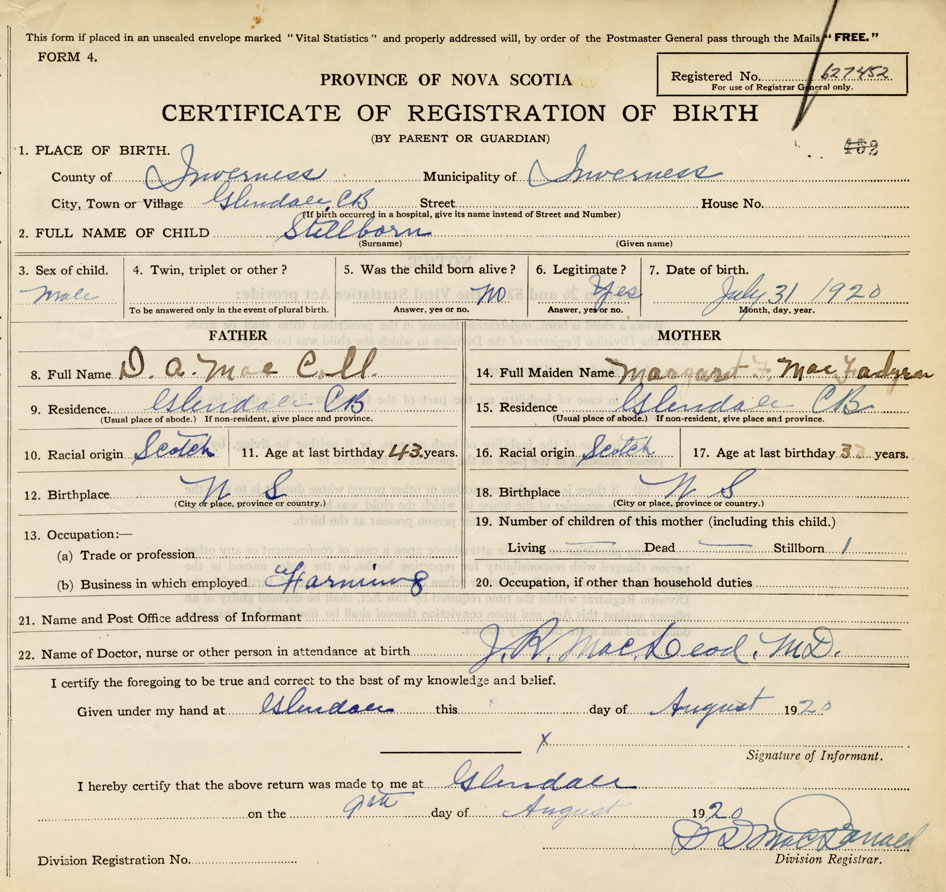 This form if placed in an unsealed envelope marked "Vital Statistics" and properly addressed will, by order of the Postmaster General pass through the Mails "FREE."
FORM 4.
PROVINCE OF NOVA SCOTIA
Registered No. 627452
For use of Registrar General only.
CERTIFICATE OF REGISTRATION OF BIRTH
(BY PARENT OR GUARDIAN)
1. PLACE OF BIRTH.
452
County of Inverness Municipality of Inverness
City, Town or Village Glendale, CB Street House No.
(If birth occurred in a hospital, give its name instead of Street and Number)
2. FULL NAME OF CHILD Stillborn
(Surname) (Given name)
3. Sex of child. 4. Twin, triplet or other? 5. Was the child born alive? 6. Legitimate? 7. Date of birth.
Male No Yes July 31 1920
To be answered only in the event of plural birth. Answer, yes or no. Answer, yes or no. Month, day, year.
FATHER MOTHER
8. Full Name D. A. Mac Coll. 14. Full Maiden Name Margaret F. MacFadyen
9. Residence Glendale CB 15. Residence Glendale CB
(Usual place of abode.) If non-resident, give place and province. (Usual place of abode.) If non-resident, give place and province.
10. Racial origin Scotch 11. Age at last birthday 43 years. 16. Racial origin Scotch 17. Age at last birthday years.
12. Birthplace N S 18. Birthplace N S
(City or place, province or country.) (City or place, province or country.)
13. Occupation:— 19. Number of children of this mother (including this child.)
(a) Trade or profession Living — Dead — Stillborn 1
(b) Business in which employed Farming 20. Occupation, if other than household duties
21. Name and Post Office address of Informant
22. Name of Doctor, nurse or other person in attendance at birth J. R. MacLeod. M.D.
I certify the foregoing to be true and correct to the best of my knowledge and belief.
Given under my hand at Glendale this day of August 1920
x
Signature of Informant.
I hereby certify that the above return was made to me at Glendale
on the 9th day of August 1920
D D MacDonald
Division Registration No. Division Registrar.